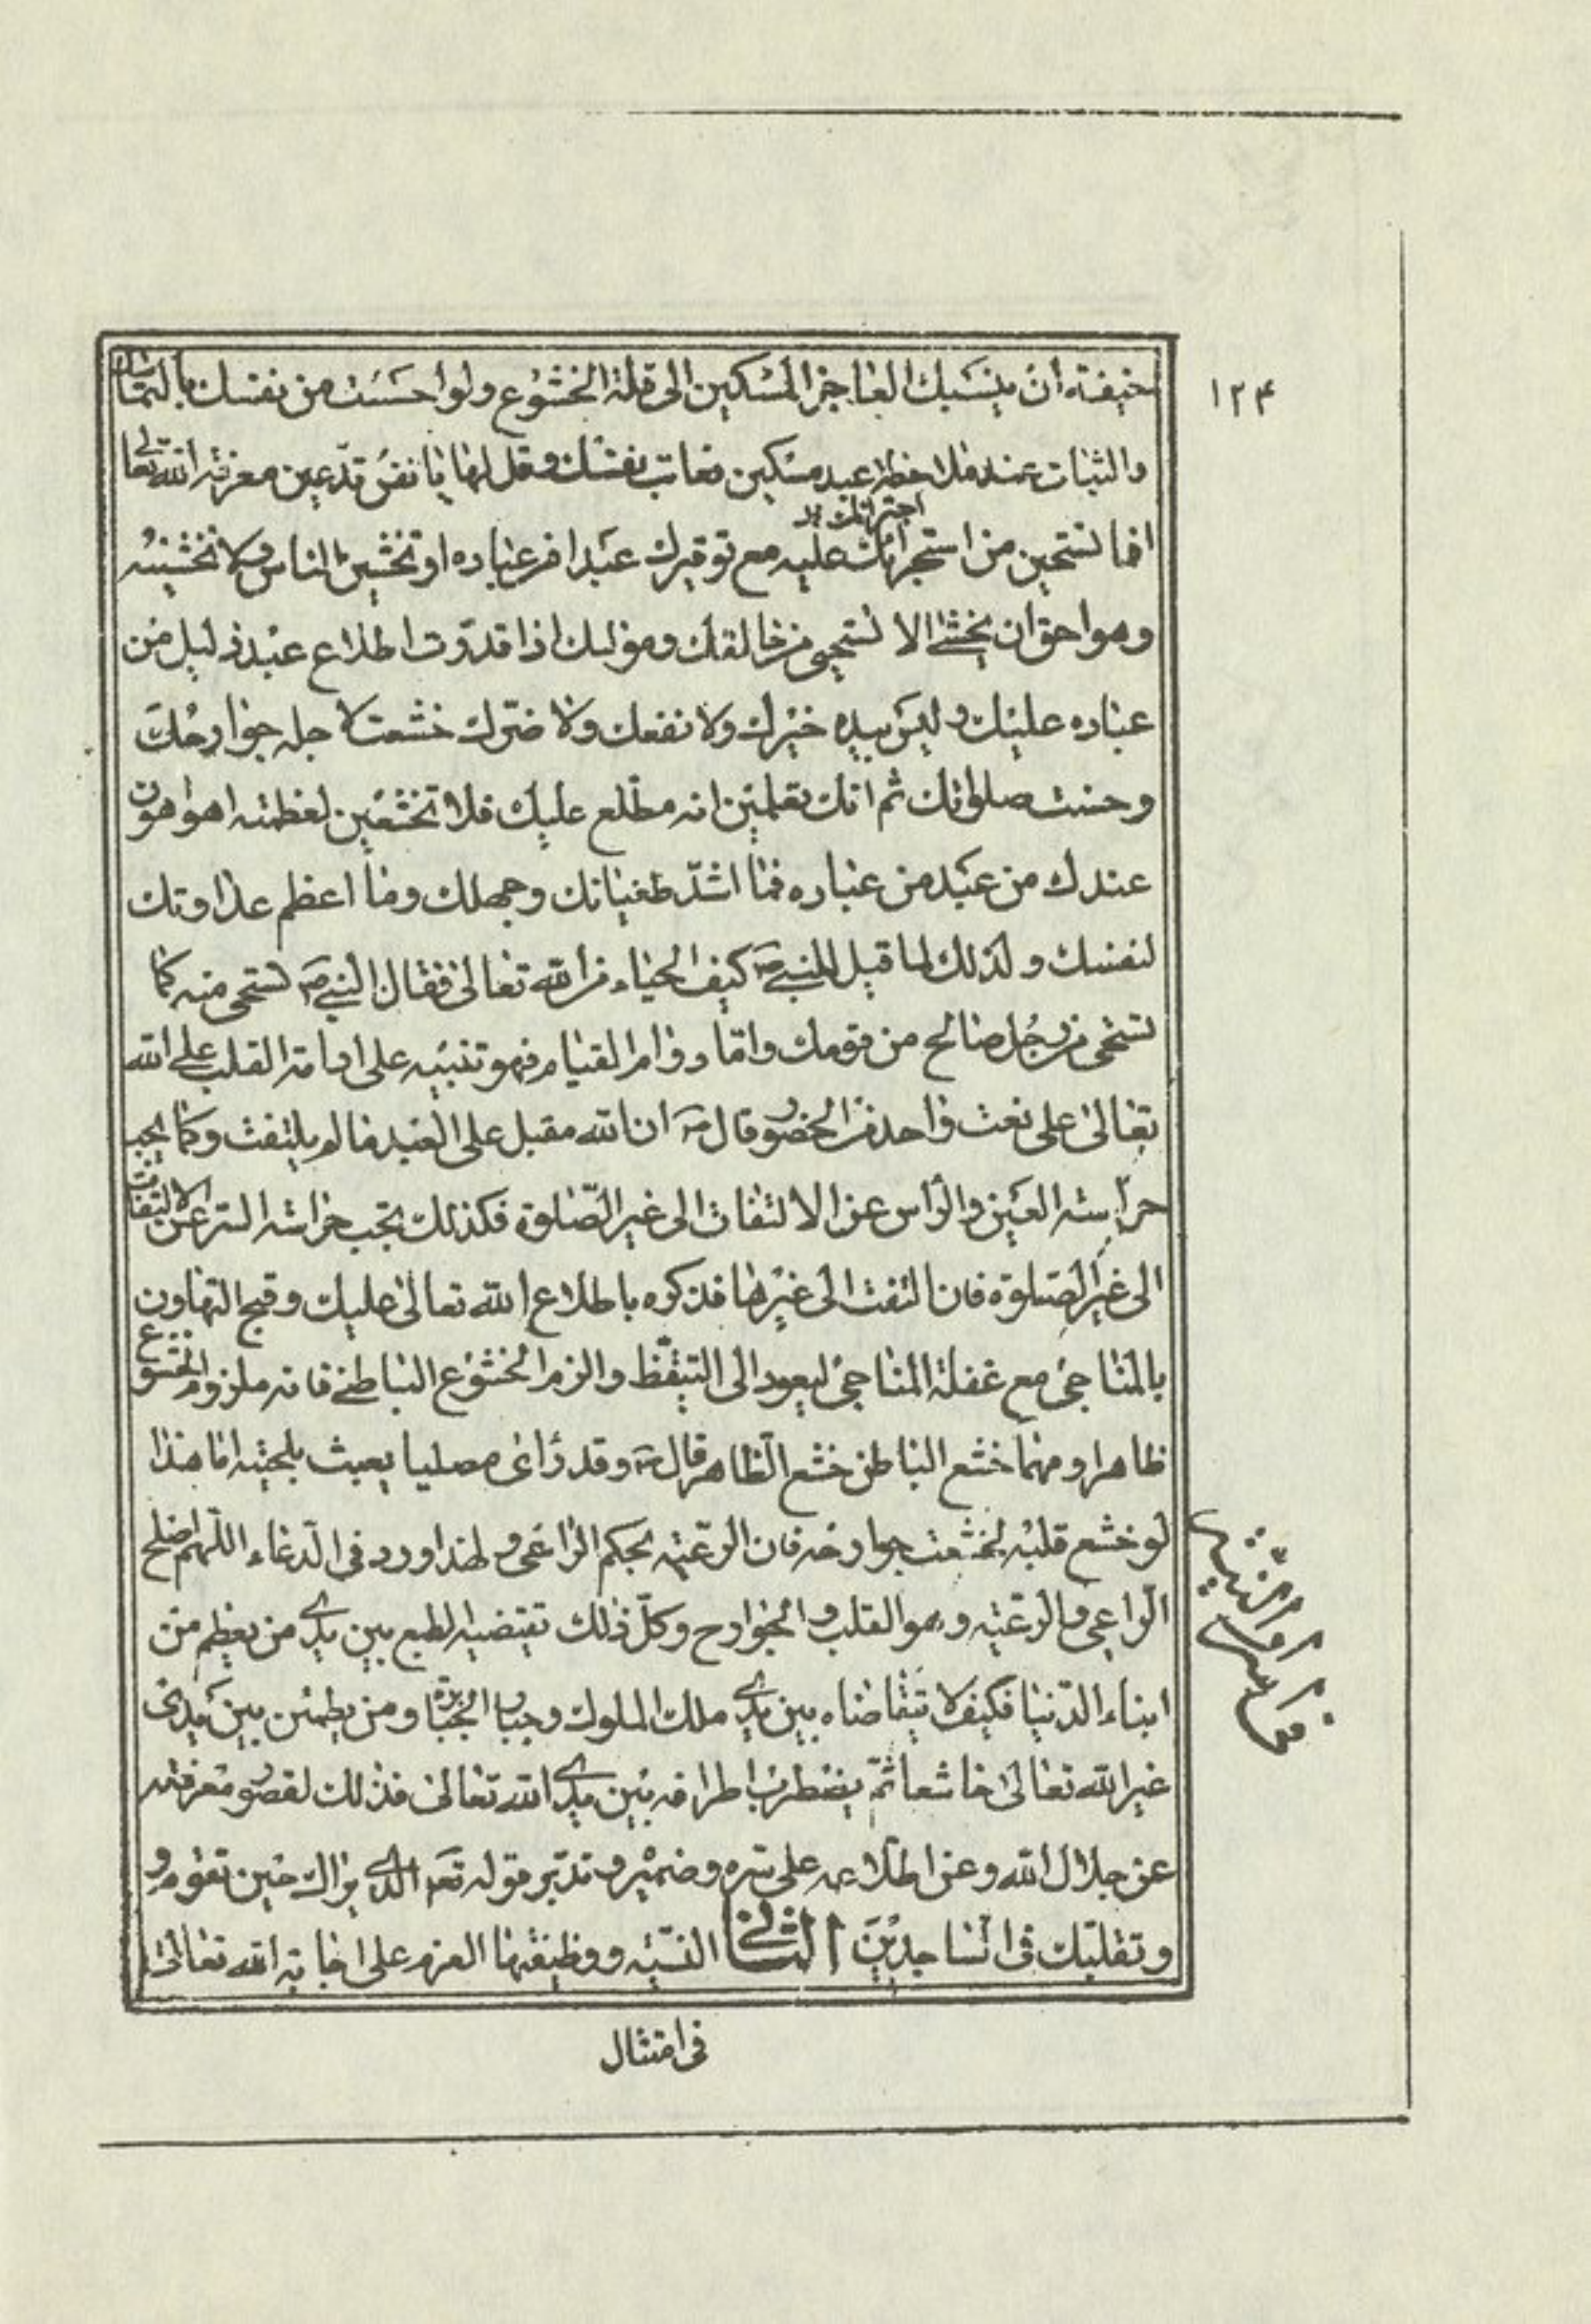 ١٢۴
خيفته ان ينسبك العاجز المسكين الى قلة الخشوع ولو احسست من نفسك بالتماسك
والثبات عند ملاحظة عبد مسكين فعاتب نفسك وقل لها يا نفس تدّعين معرفة الله تعالى
اجترائك
افما تستحين من استجرائك عليه مع توقيرك عبدا من عباده او تخشين الناس ولا تخشينه
وهو احق ان يخشى الا تستحيى من خالقك ومولاك اذا قدّرت اطلاع عبد ذليل من
عباده عليك وليس بيده خيرك ولا نفعك ولا ضرّك خشعت لاجله جوارحك
وحسنت صلواتك ثم انك تعلمين انه مطّلع عليك فلا تخشعين لعظمته اهو اهون
عندك من عبد من عباده فما اشدّ طغيانك وجهلك وما اعظم عداوتك
لنفسك ولذلك لما قيل للنبي ص كيف الحياء من الله تعالى فقال النبي ص تستحى منه كما
تستحى من رجل صالح من قومك وامّا دوام القيام فهو تنبيه على ادامة القلب على الله
تعالى على نعت واحد من الحضور قال ص ان الله مقبل على العبد ما لم يلتفت وكما يجب
حراسة العين والرأس عن الالتفات الى غير الصّلوة فكذلك تجب حراسة السر عن الالتفات
الى غير الصّلوة فان التفت الى غيرها فذكره باطلاع الله تعالى عليك وقبح التهاون
بالمناجى مع غفلة المناجى ليعود الى التيقّظ والزم الخشوع الباطنى فانه ملزوم الخشوع
ظاهرا ومهما خشع الباطن خشع الظاهر قال ص وقد رأى مصليا يعبث بلحيته اما هذا
لو خشع قلبه لخشعت جوارحه فان الرعيّة بحكم الراعى ولهذا ورد فى الدّعاء اللّهم اصلح
الرّاعى والرّعيّة وهو القلب والجوارح وكلّ ذلك تقتضيه الطبع بين يدى من يعظم من
ابناء الدّنيا فكيف لا يتقاضاه بين يدى ملك الملوك وجبار الجبابرة ومن يطمئن بين يدى
غير الله تعالى خاشعا ثمّ يضطرب اطرافه بين يدى الله تعالى فذلك لقصور معرفته
عن جلال الله وعن اطّلاعه على سره وضميره وتدبّر قوله تعه الذى يراك حين تقوم و
وتقلبّك فى السّاجدين الثانى النّيّة ووظيفتها العزم على اجابة الله تعالى
فى امتثال